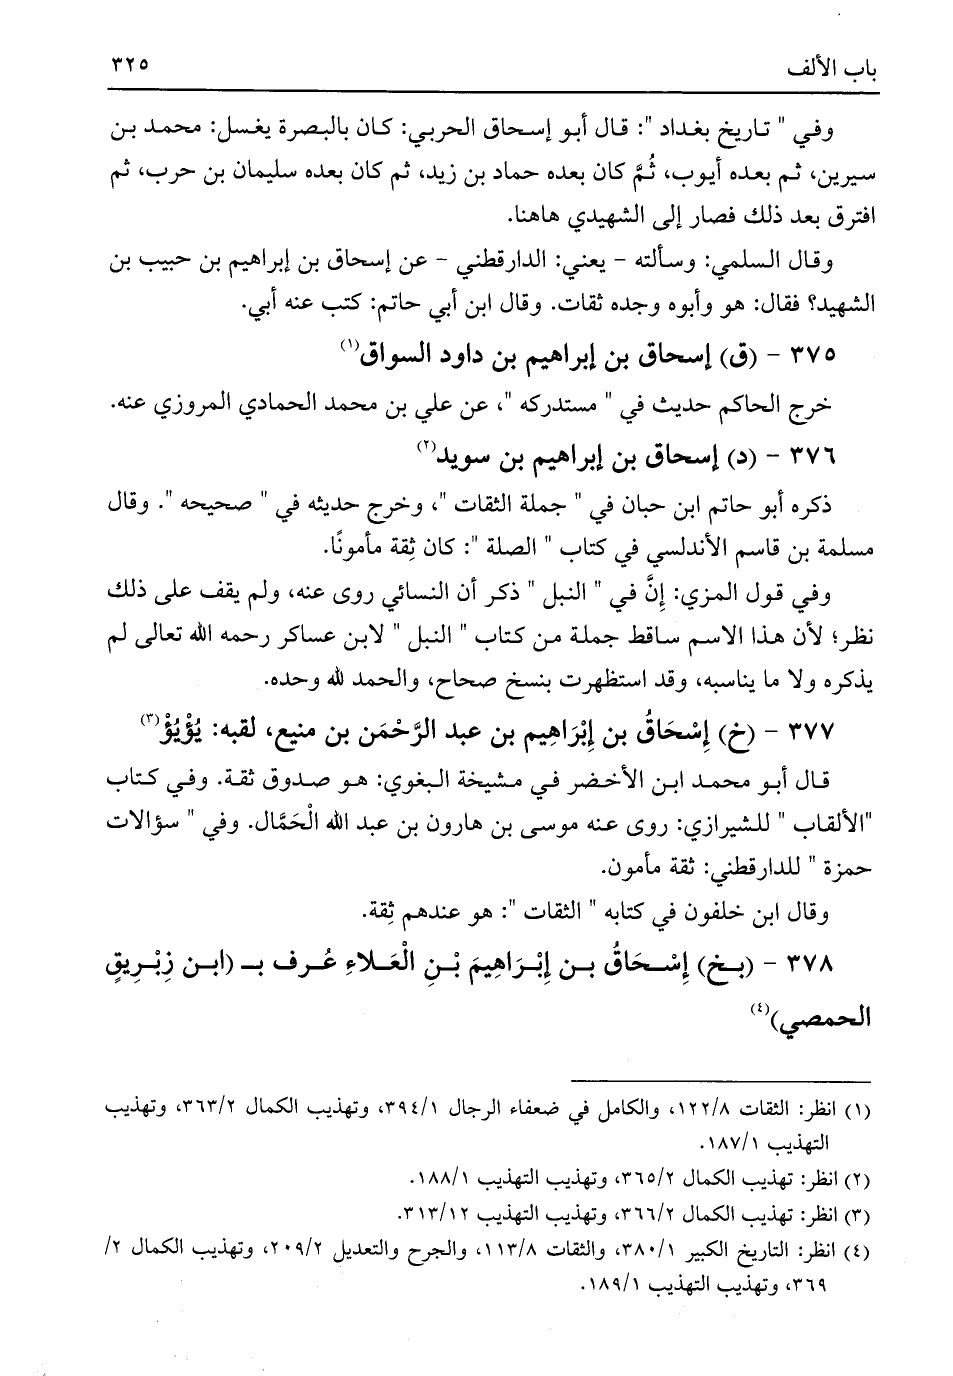 باب الألف ٣٢٥
وفي " تاريخ بغداد ": قال أبو إسحاق الحربي: كان بالبصرة يغسل: محمد بن
سيرين، ثم بعده أيوب، ثُمَّ كان بعده حماد بن زيد، ثم كان بعده سليمان بن حرب، ثم
افترق بعد ذلك فصار إلى الشهيدي هاهنا.
وقال السلمي: وسألته – يعني: الدارقطني – عن إسحاق بن إبراهيم بن حبيب بن
الشهيد؟ فقال: هو وأبوه وجده ثقات. وقال ابن أبي حاتم: كتب عنه أبي.
٣٧٥ – (ق) إسحاق بن إبراهيم بن داود السواق(١)
خرج الحاكم حديث في " مستدركه "، عن علي بن محمد الحمادي المروزي عنه.
٣٧٦ – (د) إسحاق بن إبراهيم بن سويد(٢)
ذكره أبو حاتم ابن حبان في " جملة الثقات "، وخرج حديثه في " صحيحه ". وقال
مسلمة بن قاسم الأندلسي في كتاب " الصلة ": كان ثِقة مأمونًا.
وفي قول المزي: إنَّ في " النبل " ذكر أن النسائي روى عنه، ولم يقف على ذلك
نظر؛ لأن هذا الاسم ساقط جملة من كتاب " النبل " لابن عساكر رحمه الله تعالى لم
يذكره ولا ما يناسبه، وقد استظهرت بنسخ صحاح، والحمد لله وحده.
٣٧٧ – (خ) إِسْحَاقُ بن إِبْرَاهِيم بن عبد الرَّحْمَن بن منيع، لقبه: يُؤْيُؤْ(٣)
قال أبو محمد ابن الأخضر في مشيخة البغوي: هو صدوق ثقة. وفي كتاب
"الألقاب " للشيرازي: روى عنه موسى بن هارون بن عبد الله الْحَمَّال. وفي " سؤالات
حمزة " للدارقطني: ثقة مأمون.
وقال ابن خلفون في كتابه " الثقات ": هو عندهم ثِقة.
٣٧٨ – (بخ) إِسْحَاقُ بن إِبْرَاهِيمَ بْنِ الْعَلاءِ عُرف بـ (ابن زِبْرِيقٍ
الحمصي)(٤)
(١) انظر: الثقات ١٢٢/٨، والكامل في ضعفاء الرجال ٣٩٤/١، وتهذيب الكمال ٣٦٣/٢، وتهذيب
التهذيب ١٨٧/١.
(٢) انظر: تهذيب الكمال ٣٦٥/٢، وتهذيب التهذيب ١٨٨/١.
(٣) انظر: تهذيب الكمال ٣٦٦/٢، وتهذيب التهذيب ٣١٣/١٢.
(٤) انظر: التاريخ الكبير ٣٨٠/١، والثقات ١١٣/٨، والجرح والتعديل ٢٠٩/٢، وتهذيب الكمال ٢/
٣٦٩، وتهذيب التهذيب ١٨٩/١.